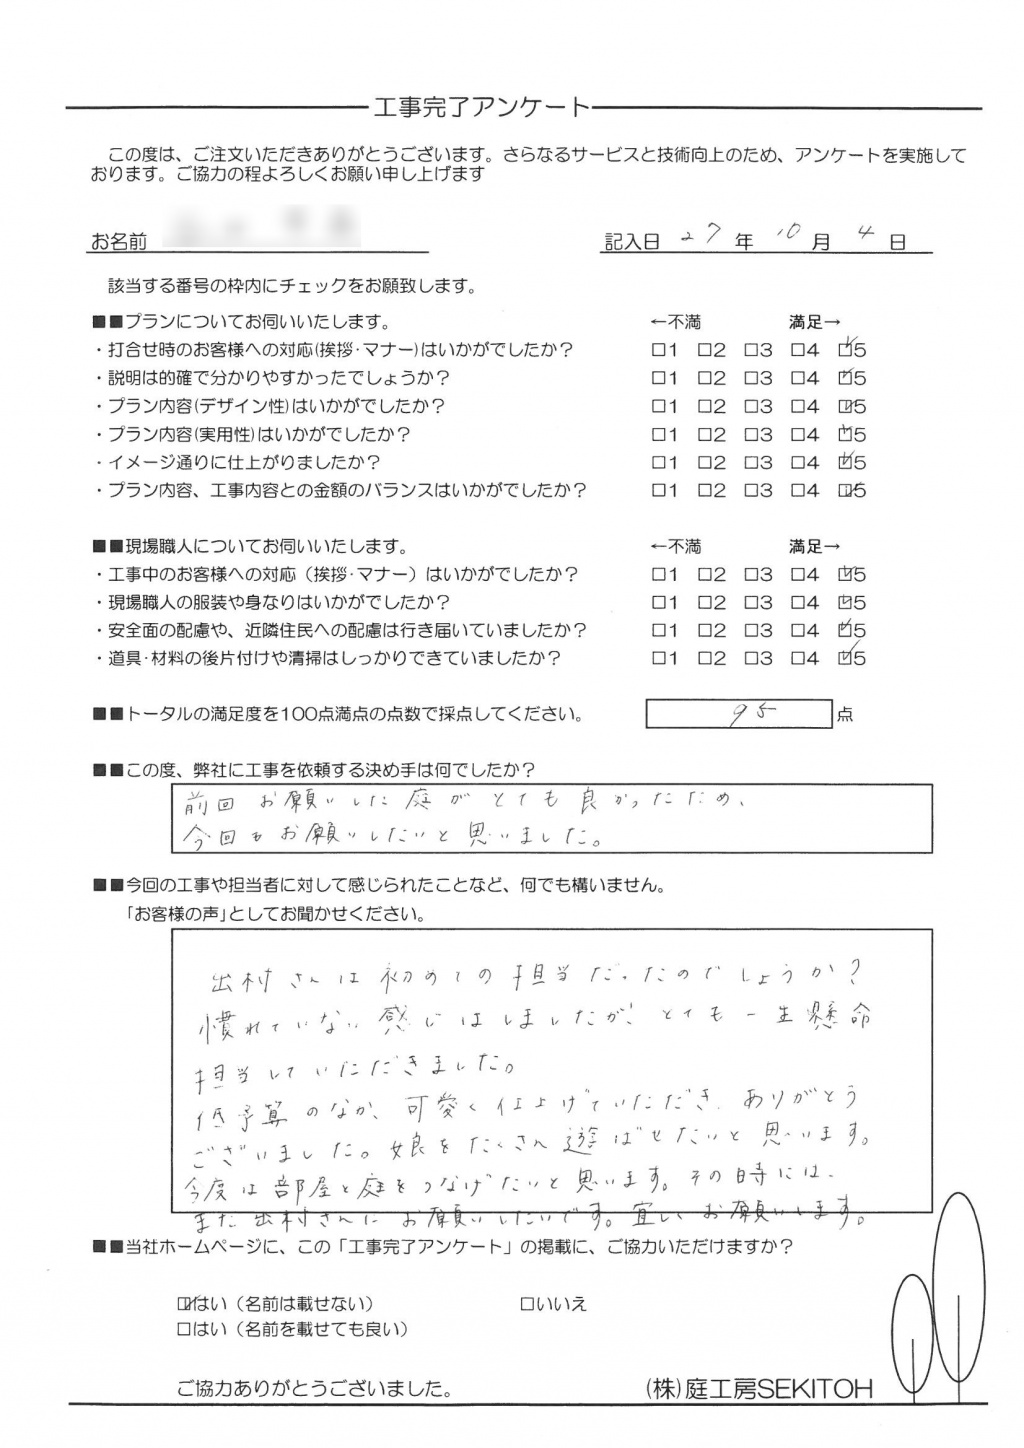 工事完了アンケート
この度は、ご注文いただきありがとうございます。さらなるサービスと技術向上のため、アンケートを実施して
おります。ご協力の程よろしくお願い申し上げます
お名前 記入日 27 年 10 月 4 日
該当する番号の枠内にチェックをお願致します。
■■プランについてお伺いいたします。 ←不満 満足→
・打合せ時のお客様への対応(挨拶・マナー)はいかがでしたか？ □1 □2 □3 □4 ☑5
・説明は的確で分かりやすかったでしょうか？ □1 □2 □3 □4 ☑5
・プラン内容(デザイン性)はいかがでしたか？ □1 □2 □3 □4 ☑5
・プラン内容(実用性)はいかがでしたか？ □1 □2 □3 □4 ☑5
・イメージ通りに仕上がりましたか？ □1 □2 □3 □4 ☑5
・プラン内容、工事内容との金額のバランスはいかがでしたか？ □1 □2 □3 □4 ☑5
■■現場職人についてお伺いいたします。 ←不満 満足→
・工事中のお客様への対応（挨拶・マナー）はいかがでしたか？ □1 □2 □3 □4 ☑5
・現場職人の服装や身なりはいかがでしたか？ □1 □2 □3 □4 ☑5
・安全面の配慮や、近隣住民への配慮は行き届いていましたか？ □1 □2 □3 □4 ☑5
・道具・材料の後片付けや清掃はしっかりできていましたか？ □1 □2 □3 □4 ☑5
■■トータルの満足度を100点満点の点数で採点してください。 95 点
■■この度、弊社に工事を依頼する決め手は何でしたか？
前回 お願いした庭がとても良かったため、
今回もお願いしたいと思いました。
■■今回の工事や担当者に対して感じられたことなど、何でも構いません。
「お客様の声」としてお聞かせください。
出村さんは初めての担当だったのでしょうか？
慣れていない感じはしましたが、とても一生懸命
担当していただきました。
低予算のなか、可愛く仕上げていただき、ありがとう
ございました。娘をたくさん遊ばせたいと思います。
今度は部屋と庭をつなげたいと思います。その時には、
また出村さんにお願いしたいです。宜しくお願いします。
■■当社ホームページに、この「工事完了アンケート」の掲載に、ご協力いただけますか？
☑はい（名前は載せない） □いいえ
□はい（名前を載せても良い）
ご協力ありがとうございました。 (株)庭工房SEKITOH